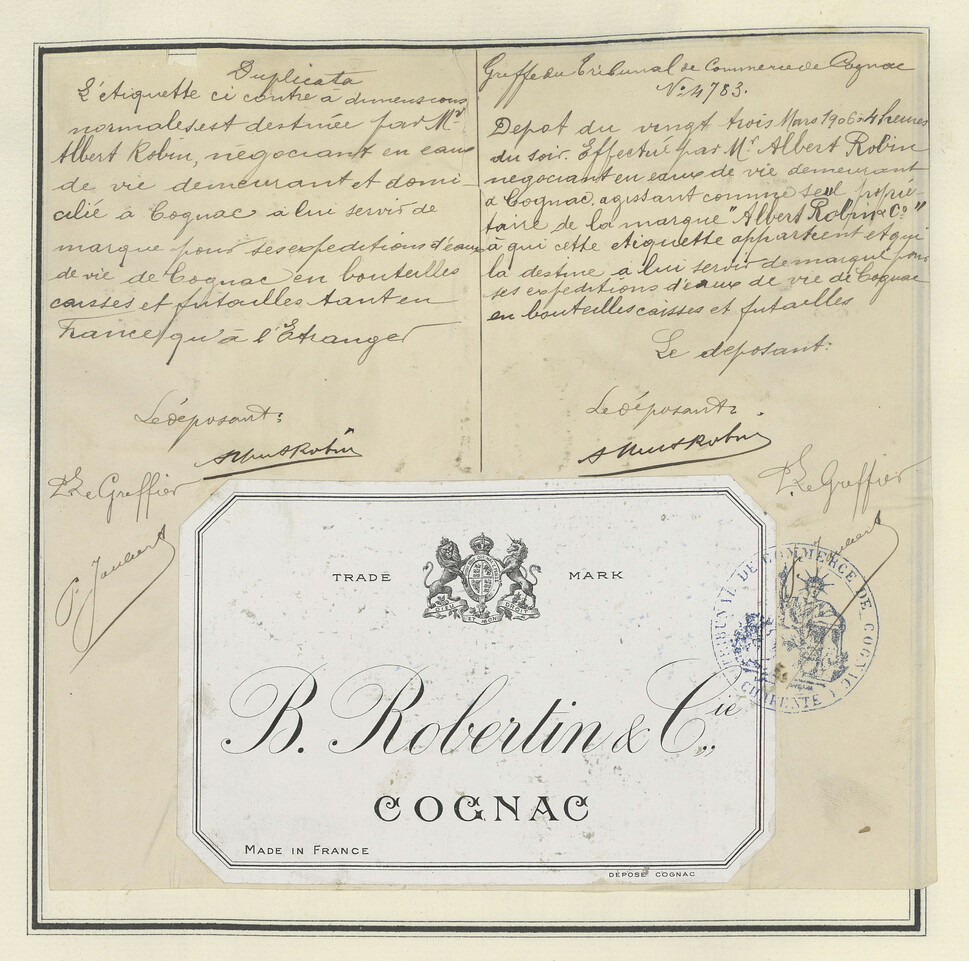 Duplicata
L'étiquette ci contre à dimensions
normales est destinée par Mr
Albert Robin, négociant en eaux
de vie demeurant et domi-
cilié à Cognac à lui servir de
marque pour ses expeditions d'eaux
de vie de Cognac en bouteilles
caisses et futailles tant en
France qu'à l'Etranger
Le déposant:
Albert Robin
Le Greffier
Greffe du Tribunal de Commerce de Cognac
No 4783.
Depot du vingt trois Mars 1906 à 4 heures
du soir. Effectué par Mr Albert Robin
négociant en eaux de vie demeurant
à Cognac, agissant comme seul proprié-
taire de la marque "Albert Robin & Co"
à qui cette étiquette appartient et qui
la destine à lui servir de marque pour
ses expeditions d'eaux de vie de Cognac
en bouteilles caisses et futailles
Le deposant:
Le déposant:
Albert Robin
Le Greffier
TRADE MARK
DIEU ET MON DROIT
B. Robertin & Cie
COGNAC
MADE IN FRANCE
DÉPOSÉ COGNAC
TRIBUNAL DE COMMERCE DE COGNAC
(CHARENTE)